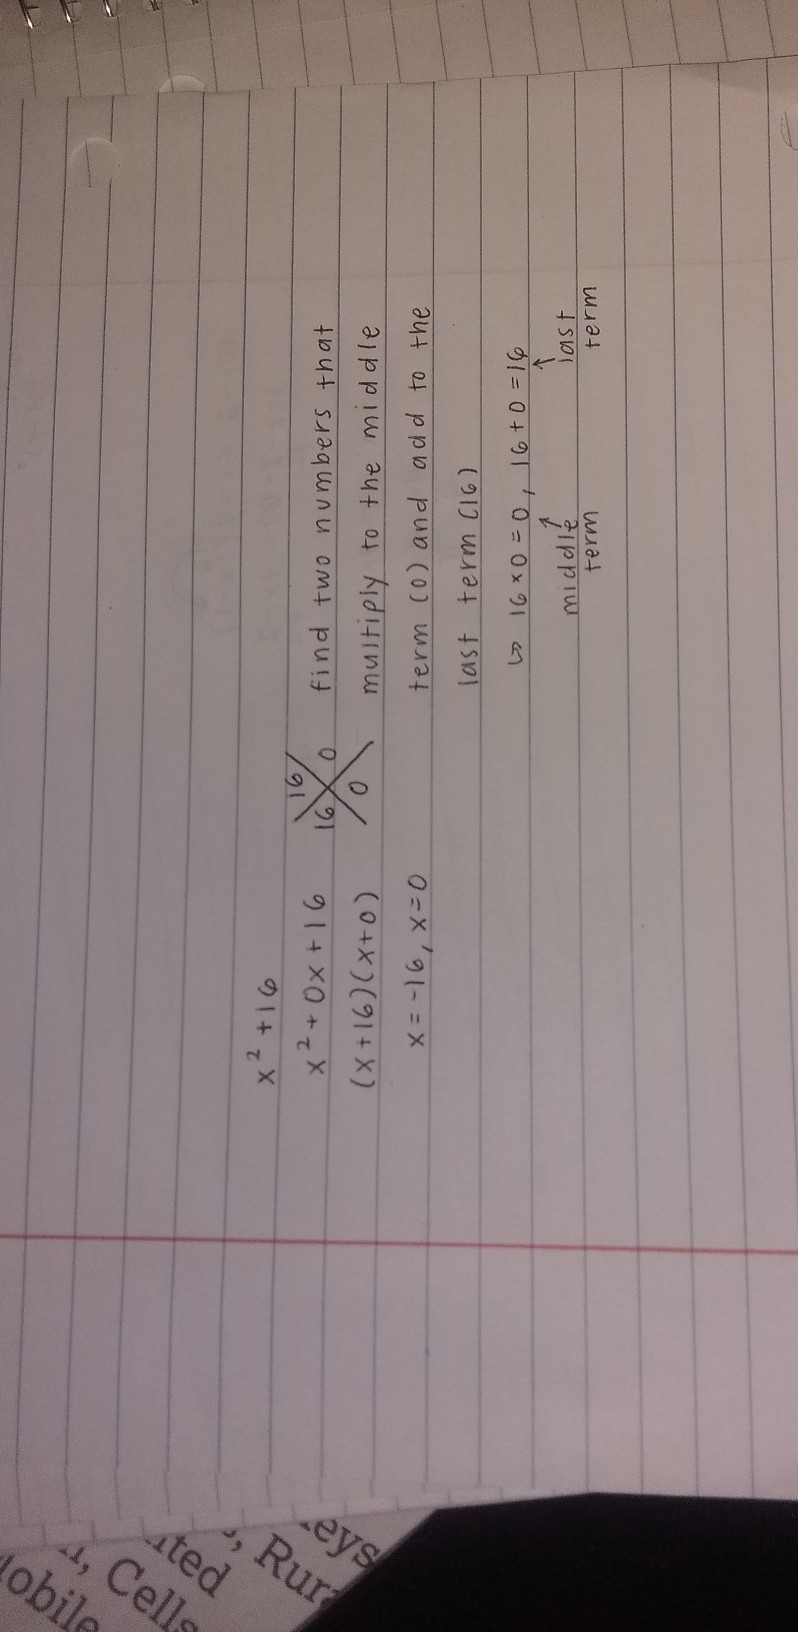 x² + 16
x² + 0x + 16
(x + 16)(x + 0)
x = -16, x = 0
16
16 0
0
find two numbers that
multiply to the middle
term (0) and add to the
last term (16)
↳ 16 × 0 = 0, 16 + 0 = 16
middle term
last term
ited
, Cells
, Rura
eys